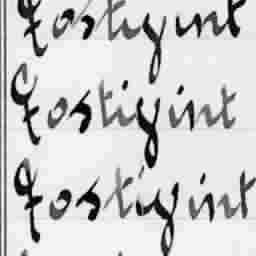 Fostigint
Fostigint
Fostigint